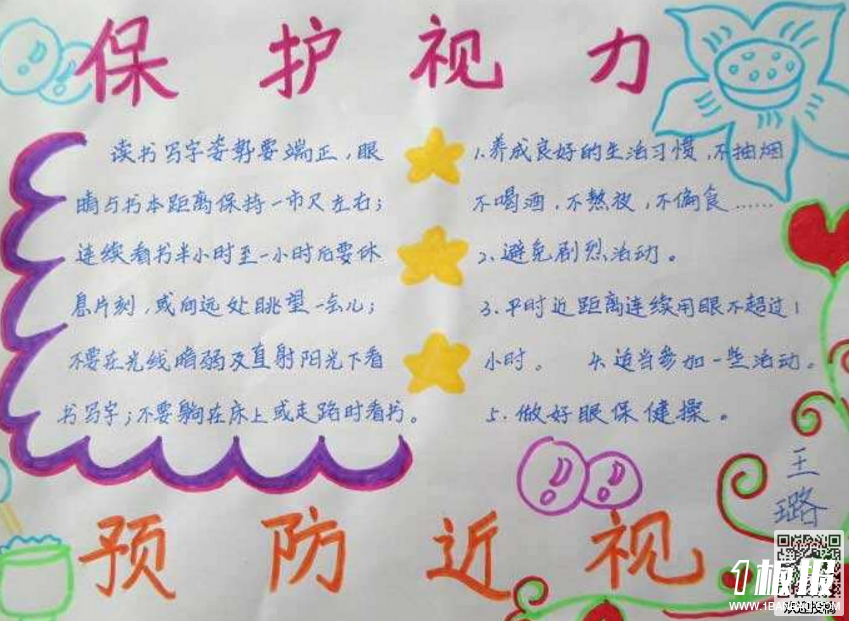 保护视力
读书写字姿势要端正，眼
睛与书本距离保持一市尺左右；
连续看书半小时至一小时后要休
息片刻，或向远处眺望一会儿；
不要在光线暗弱及直射阳光下看
书写字；不要躺在床上或走路时看书。
1.养成良好的生活习惯，不抽烟
不喝酒，不熬夜，不偏食……
2、避免剧烈活动。
3、平时近距离连续用眼不超过1
小时。 4、适当参加一些活动。
5、做好眼保健操。
王
璐
预防近视
1板报
WWW.1BANBAO.COM